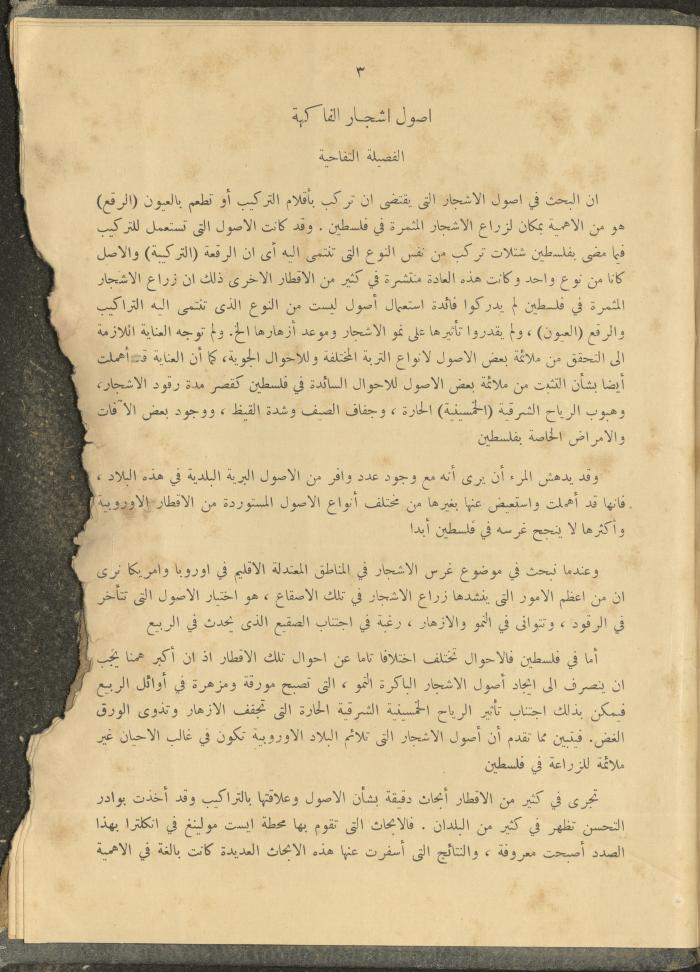 ٣
اصول اشجار الفاكهة
الفصيلة التفاحية
ان البحث في اصول الاشجار التى يقتضى ان تركب بأقلام التركيب أو تطعم بالعيون (الرقع)
هو من الاهمية بمكان لزراع الاشجار المثمرة في فلسطين . وقد كانت الاصول التى تستعمل للتركيب
فيما مضى بفلسطين شتلات تركب من نفس النوع التى تنتمى اليه أى ان الرقعة (التركيبة) والاصل
كانا من نوع واحد وكانت هذه العادة منتشرة في كثير من الاقطار الاخرى ذلك ان زراع الاشجار
المثمرة في فلسطين لم يدركوا فائدة استعمال أصول ليست من النوع الذى تنتمى اليه التراكيب
والرقع (العيون) ، ولم يقدروا تأثيرها على نمو الاشجار وموعد أزهارها الخ. ولم توجه العناية اللازمة
الى التحقق من ملائمة بعض الاصول لانواع التربة المختلفة وللاحوال الجوية، كما أن العناية قد أهملت
أيضا بشأن التثبت من ملائمة بعض الاصول للاحوال السائدة في فلسطين كقصر مدة رقود الاشجار،
وهبوب الرياح الشرقية (الخمسينية) الحارة ، وجفاف الصيف وشدة القيظ ، ووجود بعض الآفات
والامراض الخاصة بفلسطين
وقد يدهش المرء أن يرى أنه مع وجود عدد وافر من الاصول البرية البلدية في هذه البلاد ،
فانها قد أهملت واستعيض عنها بغيرها من مختلف أنواع الاصول المستوردة من الاقطار الاوروبية
وأكثرها لا ينجح غرسه في فلسطين أبدا
وعندما نبحث في موضوع غرس الاشجار في المناطق المعتدلة الاقليم في اوروبا وامريكا نرى
ان من اعظم الامور التى ينشدها زراع الاشجار في تلك الاصقاع ، هو اختيار الاصول التى تتأخر
في الرقود ، وتتوانى في النمو والازهار ، رغبة في اجتناب الصقيع الذى يحدث في الربيع
أما في فلسطين فالاحوال تختلف اختلافا تاما عن احوال تلك الاقطار اذ ان أكبر همنا يجب
ان ينصرف الى ايجاد أصول الاشجار الباكرة النمو ، التى تصبح مورقة ومزهرة في أوائل الربيع
فيمكن بذلك اجتناب تأثير الرياح الخمسينية الشرقية الحارة التى تجفف الازهار وتذوى الورق
الغض. فيتبين مما تقدم أن أصول الاشجار التى تلائم البلاد الاوروبية تكون في غالب الاحيان غير
ملائمة للزراعة في فلسطين
تجرى في كثير من الاقطار أبحاث دقيقة بشأن الاصول وعلاقتها بالتراكيب وقد أخذت بوادر
التحسن تظهر في كثير من البلدان . فالابحاث التى تقوم بها محطة ايست مولينغ في انكلترا بهذا
الصدد أصبحت معروفة ، والنتائج التى أسفرت عنها هذه الابحاث العديدة كانت بالغة في الاهمية